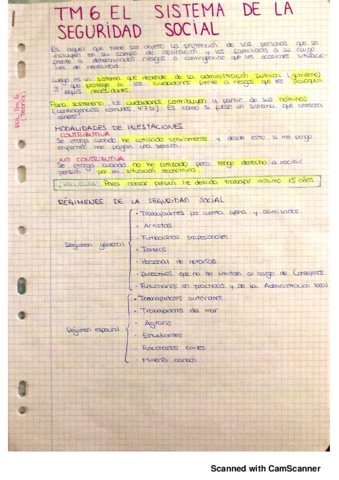 TM 6 EL SISTEMA DE LA
SEGURIDAD SOCIAL
Es aquel que tiene por objeto la protección de las personas que se
incluyan en su campo de aplicación y los familiares a su cargo
frente a determinados riesgos o contingencias que les ocasionen situacio-
nes de necesidad.
Luego es un sistema que depende de la administración pública (gobierno)
y que protege a los ciudadanos frente a riesgos que les
Para sostenerlo, los ciudadanos contribuyen a partir de sus nóminas
(contingencias comunes 4'7%). Es como si fuese un sistema que
dinero.
MODALIDADES DE PRESTACIONES
CONTRIBUTIVA
Se otorga cuando he cotizado previamente y desde esto, si me pongo
enfermo me pagan una pensión.
NO CONTRIBUTIVA
Se otorga cuando no he cotizado pero tengo derecho a recibir
pensión por mi situación económica.
Para cobrar pensión he debido trabajar 15 años
REGÍMENES DE LA SEGURIDAD SOCIAL
Régimen general
· Trabajadores por cuenta ajena y asimilados
· Artistas
· Futbolistas profesionales
· Toreros
· Personal de notarías
· Directivos que no se limitan al cargo de Consejeros
· Funcionarios en prácticas y de la Administración local
Régimen especial
· Trabajadores autónomos
· Trabajadores del mar
· Agrario
· Estudiantes
· Funcionarios civiles
· Minería carbón
Scanned with CamScanner